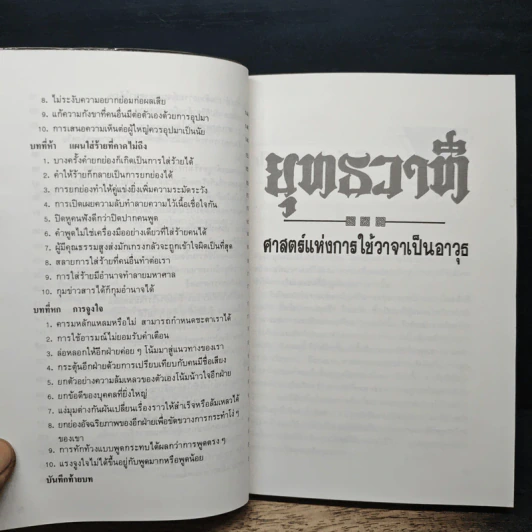 8. ไม่ระงับความอยากย่อมก่อผลเสีย
9. แก้ความกังขาที่คนอื่นมีต่อตัวเองด้วยการอุปมา
10. การเสนอความเห็นต่อผู้ใหญ่ควรอุปมาเป็นนัย
บทที่ห้า แผนใส่ร้ายที่คาดไม่ถึง
1. บางครั้งคำยกย่องก็เกิดเป็นการใส่ร้ายได้
2. คำให้ร้ายก็กลายเป็นการยกย่องได้
3. การยกย่องทำให้คู่แข่งยิ่งเพิ่มความระมัดระวัง
4. การเปิดเผยความลับทำลายความไว้เนื้อเชื่อใจกัน
5. ปิดหูคนฟังดีกว่าปิดปากคนพูด
6. คำพูดไม่ใช่เครื่องมืออย่างเดียวที่ใส่ร้ายคนได้
7. ผู้มีคุณธรรมสูงส่งมักเกรงกลัวจะถูกเข้าใจผิดเป็นที่สุด
8. สลายการใส่ร้ายที่คนอื่นทำต่อเรา
9. การใส่ร้ายมีอำนาจทำลายมหาศาล
10. กุมข่าวสารได้ก็กุมอำนาจได้
บทที่หก การจูงใจ
1. คารมหลักแหลมหรือไม่ สามารถกำหนดชะตาเราได้
2. การใช้อารมณ์ไม่ยอมรับคำเตือน
3. ล่อหลอกให้อีกฝ่ายค่อย ๆ โน้มมาสู่แนวทางของเรา
4. กระตุ้นอีกฝ่ายด้วยการเปรียบเทียบกับคนมีชื่อเสียง
5. ยกตัวอย่างความล้มเหลวของตัวเองโน้มน้าวใจอีกฝ่าย
6. ยกข้อดีของบุคคลที่ยิ่งใหญ่
7. แง่มุมต่างกันผันเปลี่ยนเรื่องราวให้สำเร็จหรือล้มเหลวได้
8. ยกย่องอัจฉริยภาพของอีกฝ่ายเพื่อขัดขวางการกระทำโง่ ๆ
ของเขา
9. การทักท้วงแบบพูดกระทบได้ผลกว่าการพูดตรง ๆ
10. แรงจูงใจไม่ได้ขึ้นอยู่กับพูดมากหรือพูดน้อย
บันทึกท้ายบท
ยุทธวาที
ศาสตร์แห่งการใช้วาจาเป็นอาวุธ